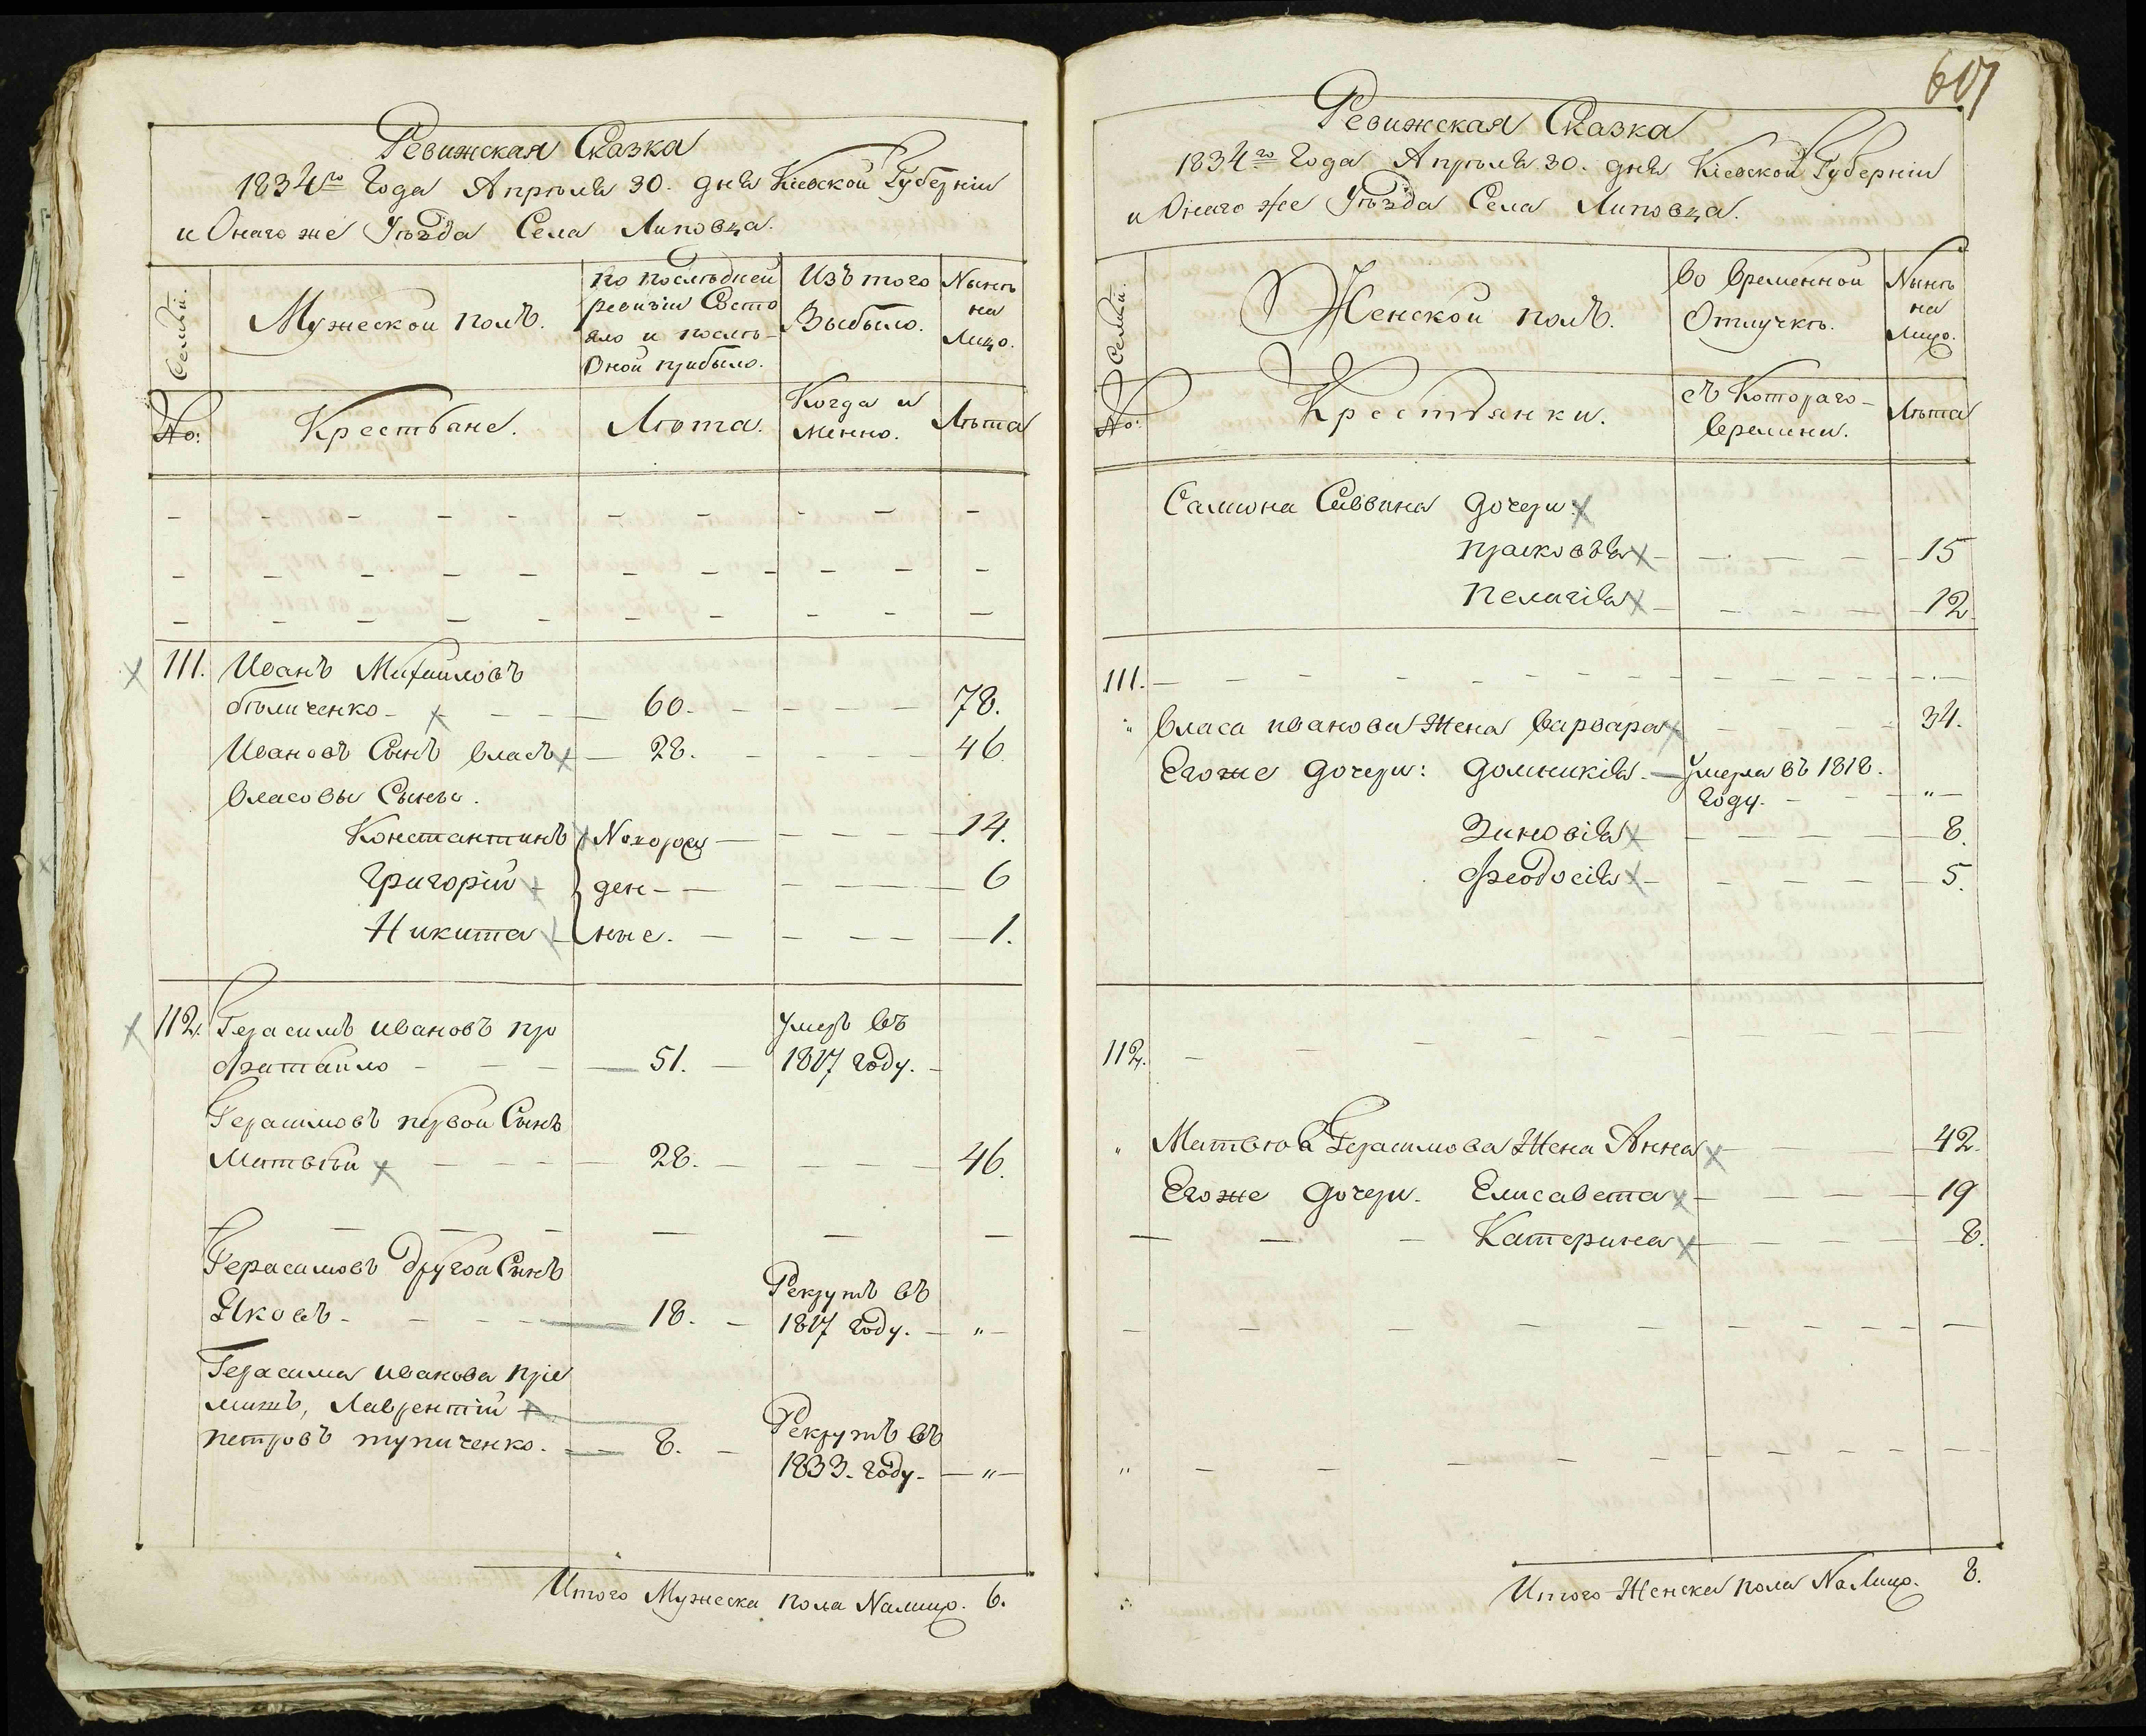 Ревижская Сказка
1834го Года Апреля 30. дня Кіевской Губерніи
и Онаго же Уѣзда Села Липовца.
Семьи.
Мужеской полъ.
по послѣдней
ревизіи Состо
яло и послѣ
Оной прибыло.
Изъ того
Выбыло.
Нынѣ
на
Лицо.
№:
Крестьяне.
Лѣта.
Когда и
менно.
Лѣта
111. Иванъ Михайловъ
бѣличенко 60. 78.
Ивановъ Сынъ власъ 28. 46
власовы Сынъ.
Константинъ Новорож 14.
Григорій ден 6
Никита ные. 1.
112. Герасимъ ивановъ Умеръ въ
51. 1817 году.
Герасимовъ первой Сынъ
Матвѣй 28. 46.
Герасимовъ другой Сынъ
Яковъ 18. Рекрутъ въ
1817 году. "
Герасима иванова пріе
мышъ, Лаврентій
петровъ тупиченко. 8. Рекрутъ въ
1833. году. "
Итого Мужеска пола Налицо. 6.
607
Ревижская Сказка
1834го Года Апреля 30. дня Кіевской Губерніи
и Онаго же Уѣзда Села Липовца.
Семьи.
Женской полъ.
во временной
Отлучкѣ.
Нынѣ
на
Лицо.
№:
Крестьянки.
съ Котораго
времини.
Лѣта
Самиона Саввина дочери
прасковья 15
пелагія 12
111.
власа иванова Жена варвара 34.
Егоже дочери: домникія. Умерла въ 1818.
году. "
Зиновія 8.
феодосія 5.
112.
" Матвѣя Герасимова Жена Анна 42.
Егоже дочери. Елисавета 19
Катерина 8.
"
Итого Женска пола На Лицо. 8.